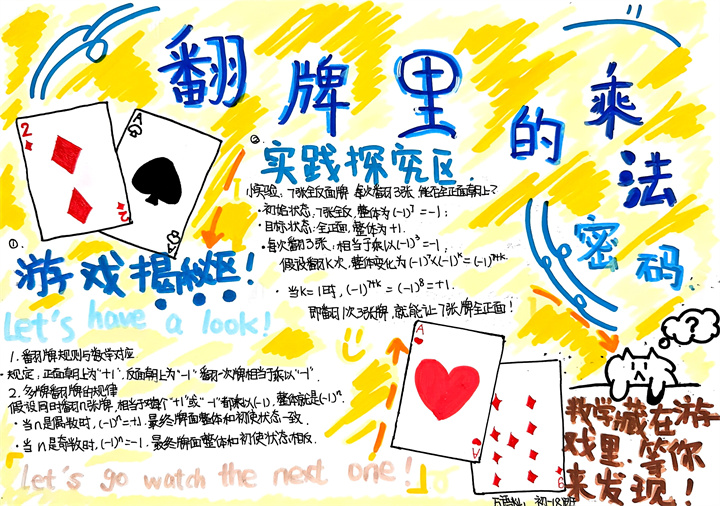 翻牌里的乘法密码
2
2
A
A
①
游戏揭秘区!
Let's have a look!
1. 翻牌规则与数学对应
规定:正面朝上为"+1",反面朝上为"-1"翻一次牌相当于乘以"-1".
2. 多牌翻牌的规律
假设同时翻n张牌,相当于对n个"+1"或"-1"都乘以(-1),整体就是(-1)ⁿ.
· 当n是偶数时,(-1)ⁿ=+1.最终牌面整体和初使状态一致.
· 当n是奇数时,(-1)ⁿ=-1.最终牌面整体和初使状态相反.
Let's go watch the next one!
②
实践探究区.
1.实验:7张全反面牌 每次翻3张,能否全正面朝上?
· 初始状态:7张全反,整体为(-1)⁷=-1;
· 目标状态:全正面,整体为+1.
· 每次翻3张:相当于乘以(-1)³=-1,
假设翻k次,整体变化为(-1)⁷×(-1)ᵏ=(-1)⁷⁺ᵏ.
· 当k=1时,(-1)⁷⁺ᵏ=(-1)⁸=+1.
即翻1次3张牌,就能让7张牌全正面!
A
A
9
9
?
数学藏在游
戏里.等你
来发现!